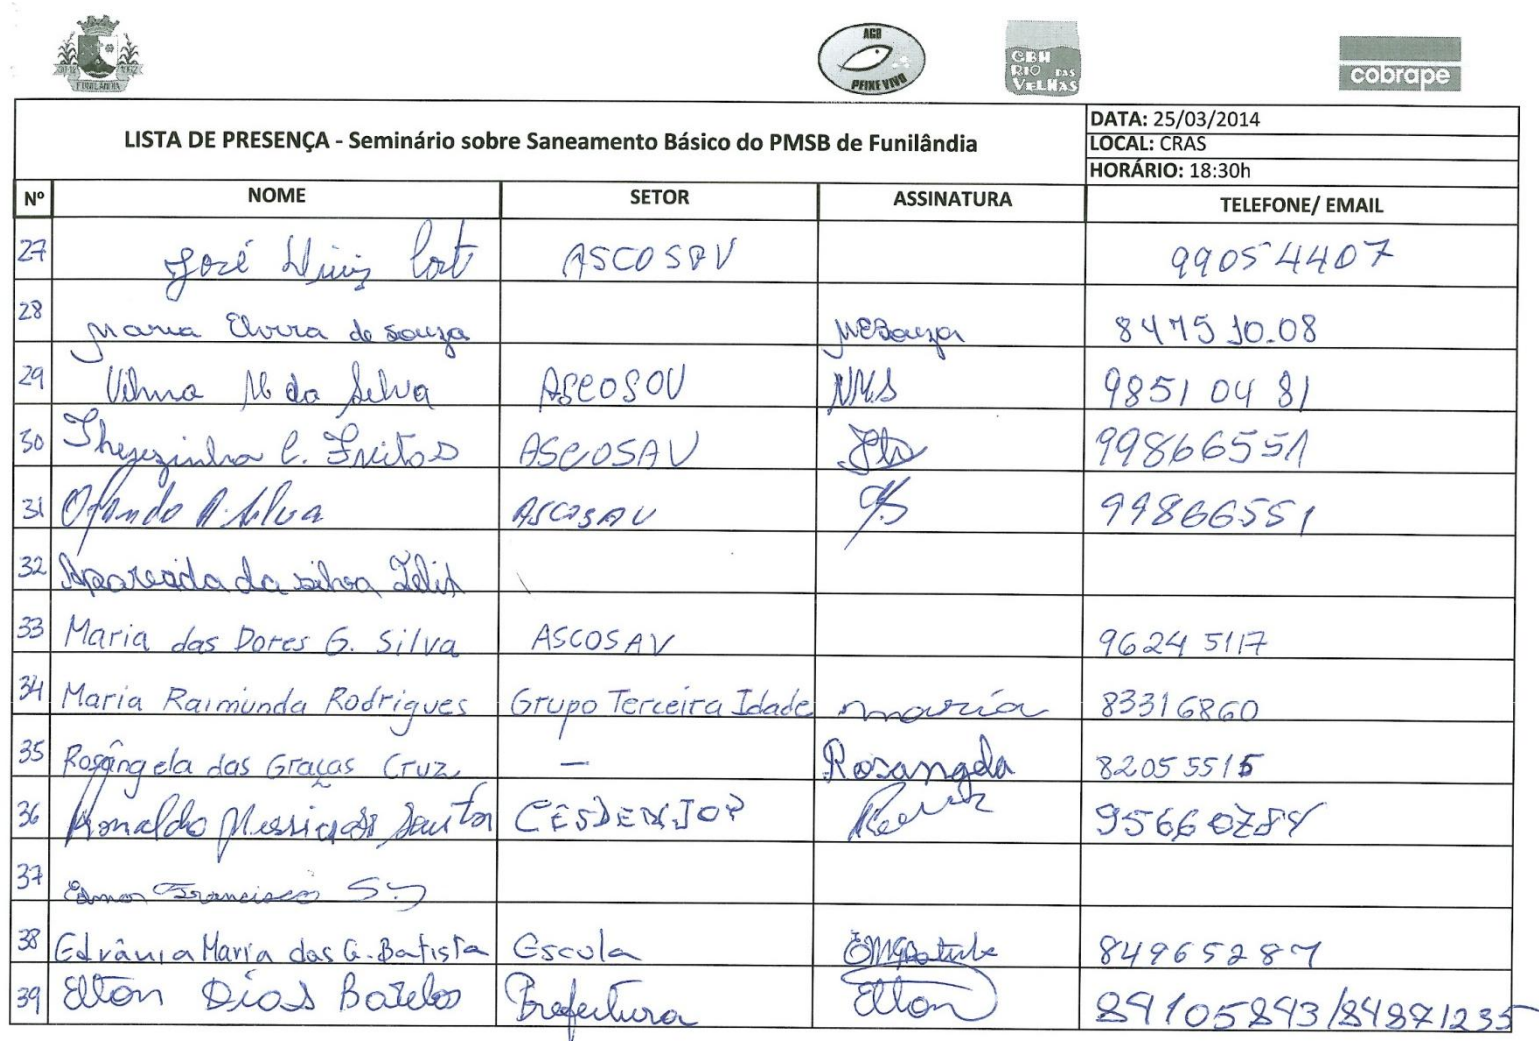 FUNILÂNDIA
AGB
PEIXE VIVO
CBH
RIO DAS
VELHAS
cobrape
LISTA DE PRESENÇA - Seminário sobre Saneamento Básico do PMSB de Funilândia
DATA: 25/03/2014
LOCAL: CRAS
HORÁRIO: 18:30h
Nº NOME SETOR ASSINATURA TELEFONE/ EMAIL
27 José ASCOSAV 99054407
28 Maria Elvira de Souza MESouza 8475 10.08
29 Vilma M da Silva ASCOSOV 9851 04 81
30 Therezinha C. Freitas ASCOSAV 99866551
31 A. Silva ASCOSAV 99866551
32 Aparecida da silva Felix
33 Maria das Dores G. Silva ASCOSAV 96245117
34 Maria Raimunda Rodrigues Grupo Terceira Idade maria 83316860
35 Rosângela das Graças Cruz — Rosangela 82055515
36 Ronaldo Messias 95660784
37 Francisco
38 Edvânia Maria das G. Batista Escola 84965287
39 Elton Dias Prefeitura Elton 89105893/84871235